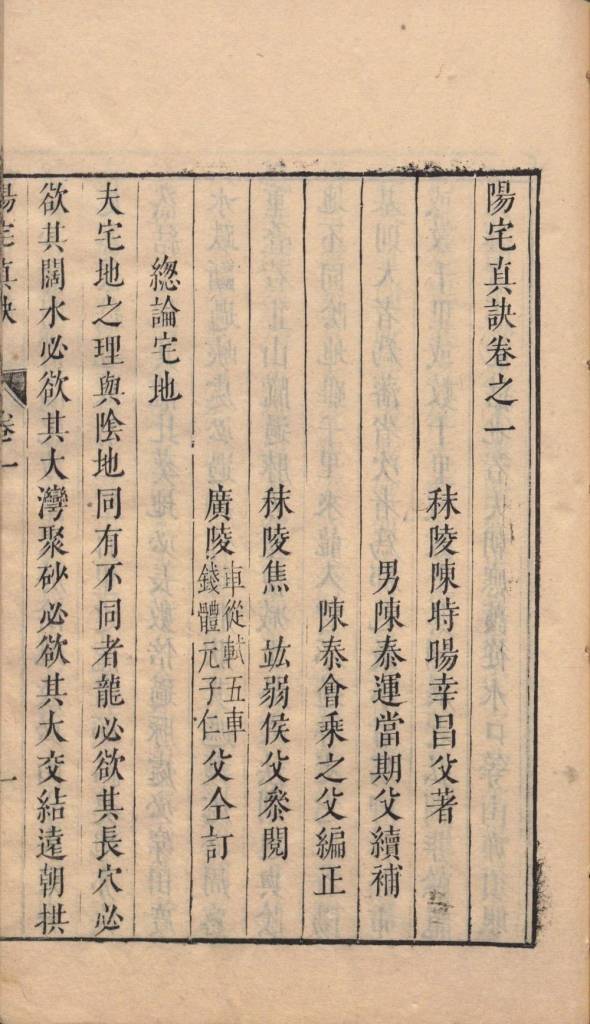 陽宅真訣卷之一
秣陵陳時暘幸昌父著
男陳泰運當期父續補
陳泰會乘之父編正
秣陵焦竑弱侯父叅閱
廣陵車從軾五車錢體元子仁父仝訂
總論宅地
夫宅地之理與陰地同有不同者龍必欲其長穴必
欲其闊水必欲其大灣聚砂必欲其大交結遠朝拱
陽宅真訣 卷一 一